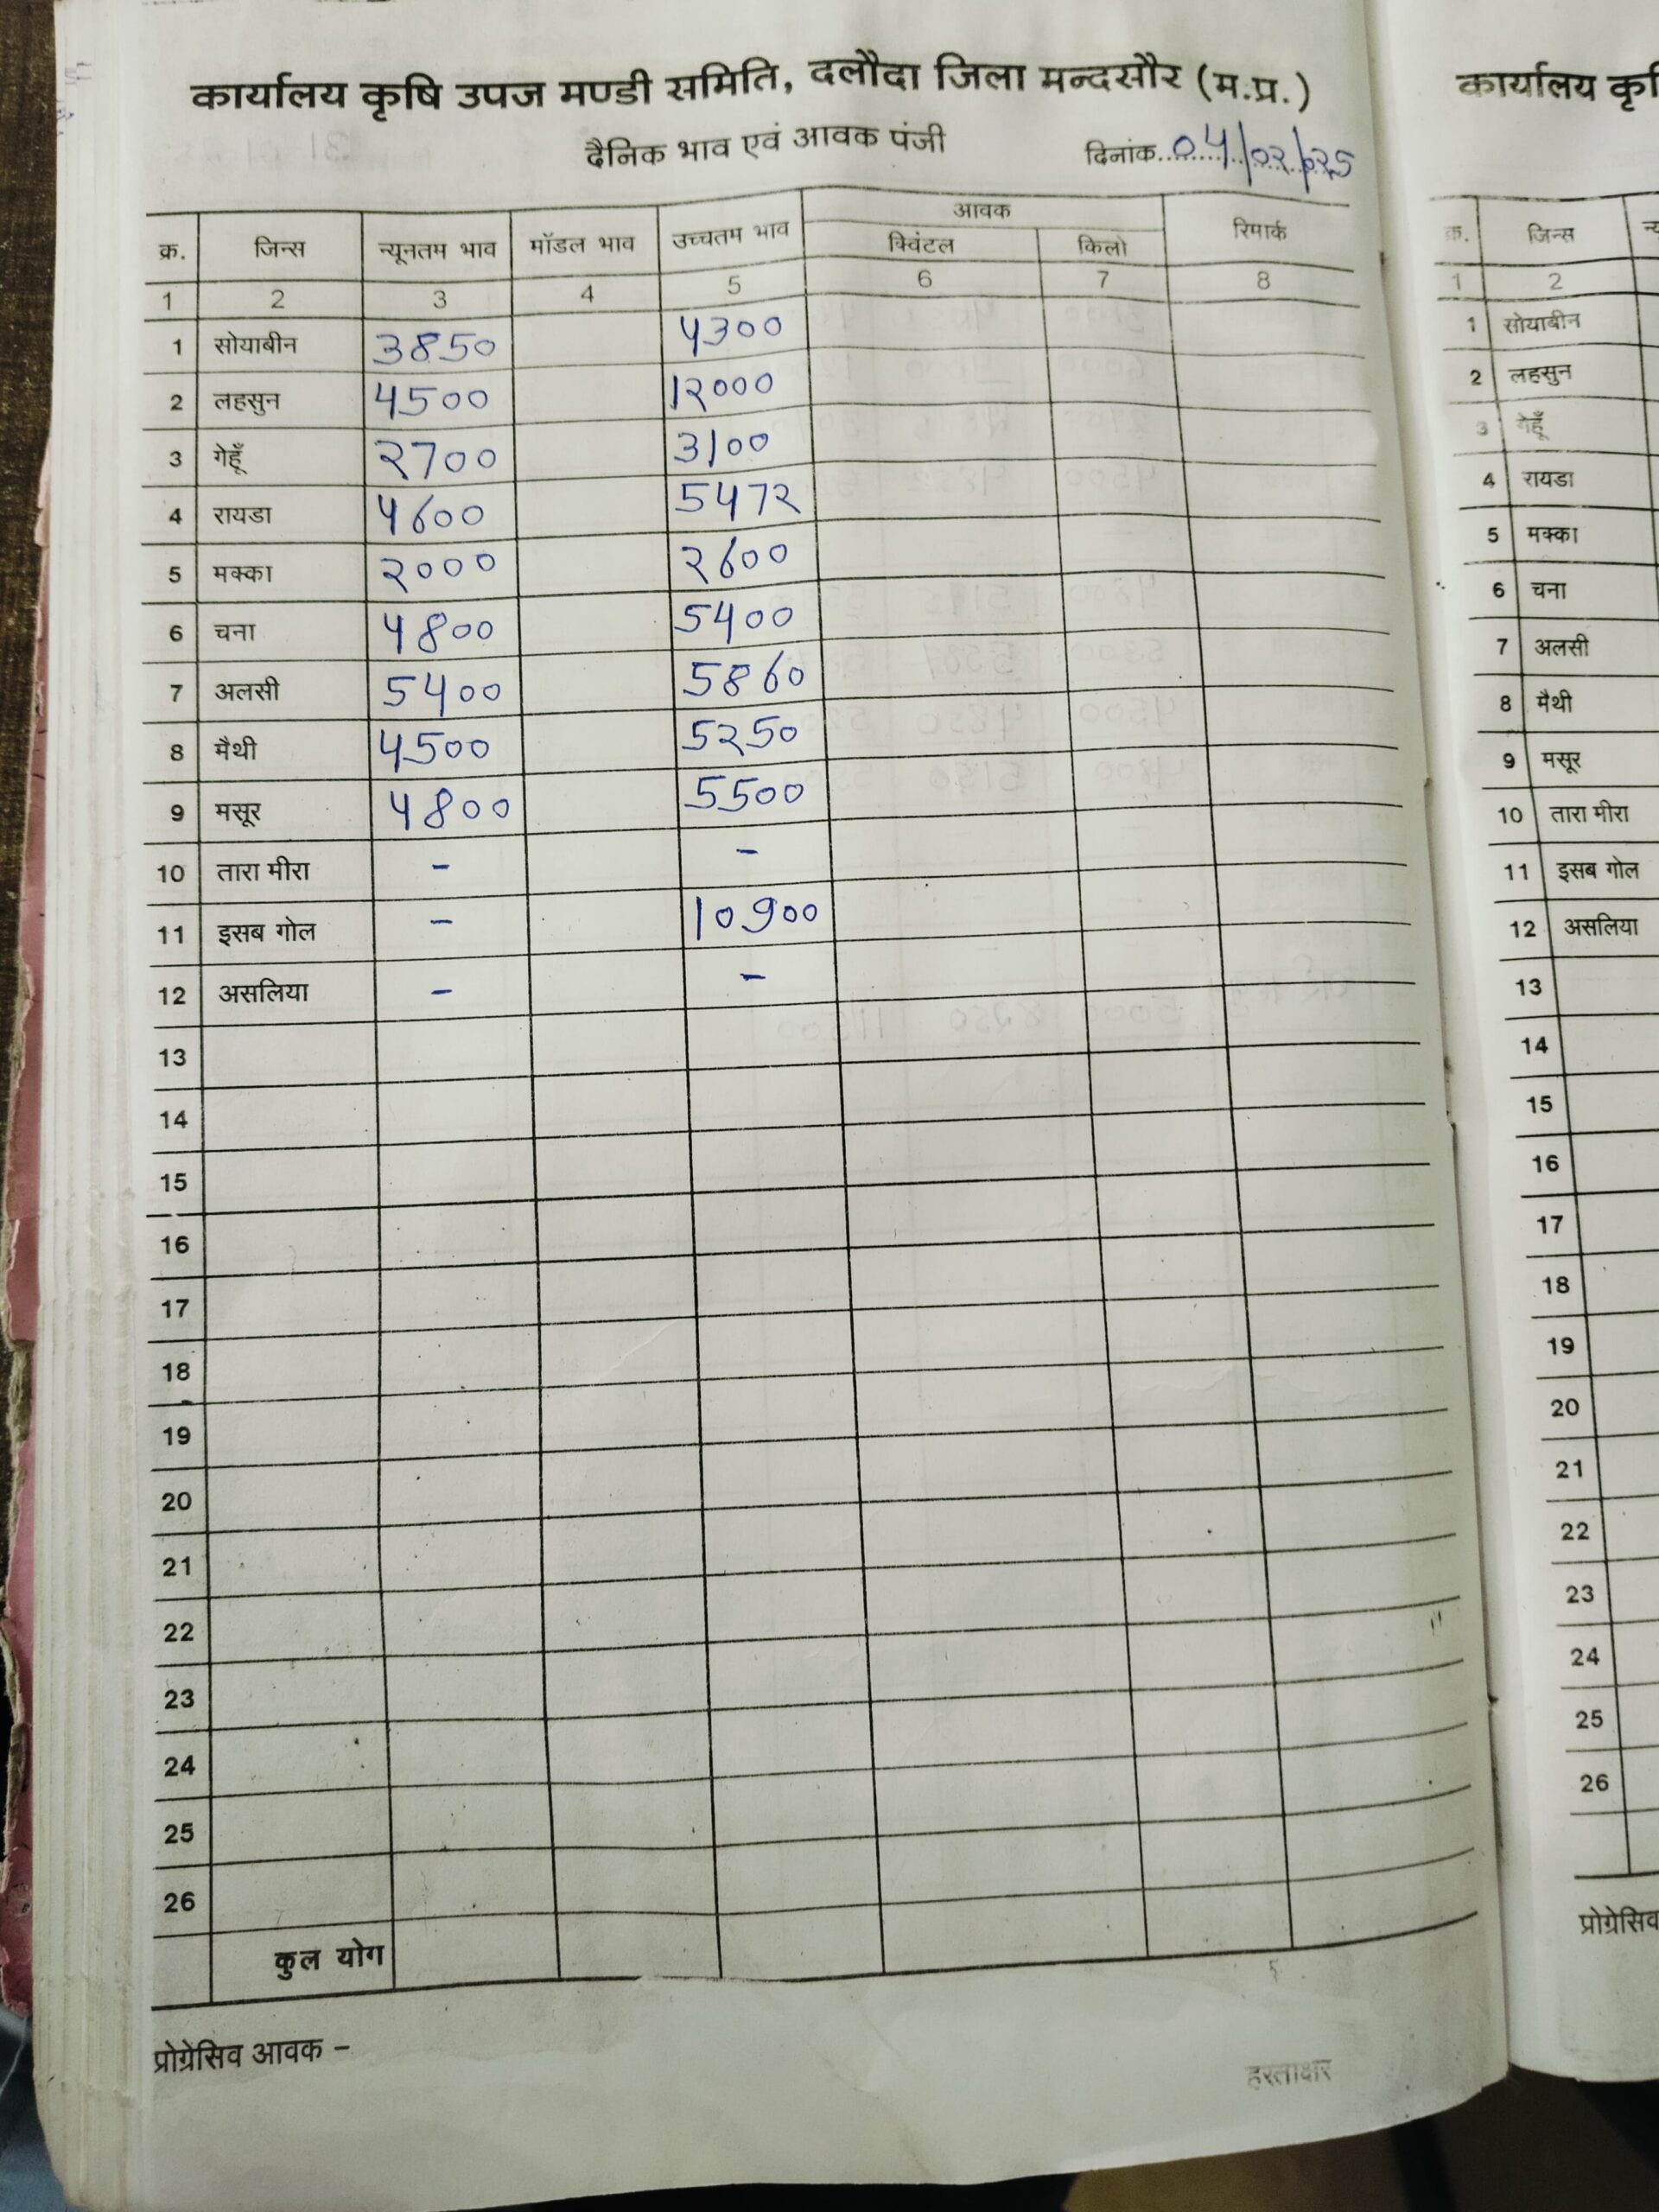 कार्यालय कृषि उपज मण्डी समिति, दलौदा जिला मन्दसौर (म.प्र.)
दैनिक भाव एवं आवक पंजी दिनांक 04/02/025
क्र. जिन्स न्यूनतम भाव मॉडल भाव उच्चतम भाव आवक रिमार्क
क्विंटल किलो
1 2 3 4 5 6 7 8
1 सोयाबीन 3850 4300
2 लहसुन 4500 12000
3 गेहूँ 2700 3100
4 रायडा 4600 5472
5 मक्का 2000 2600
6 चना 4800 5400
7 अलसी 5400 5860
8 मैथी 4500 5250
9 मसूर 4800 5500
10 तारा मीरा - -
11 इसब गोल - 10900
12 असलिया - -
13
14
15
16
17
18
19
20
21
22
23
24
25
26
कुल योग
प्रोग्रेसिव आवक -
हस्ताक्षर
कार्यालय
क्र. जिन्स
1 2
1 सोयाबीन
2 लहसुन
3 गेहूँ
4 रायडा
5 मक्का
6 चना
7 अलसी
8 मैथी
9 मसूर
10 तारा मीरा
11 इसब गोल
12 असलिया
13
14
15
16
17
18
19
20
21
22
23
24
25
26